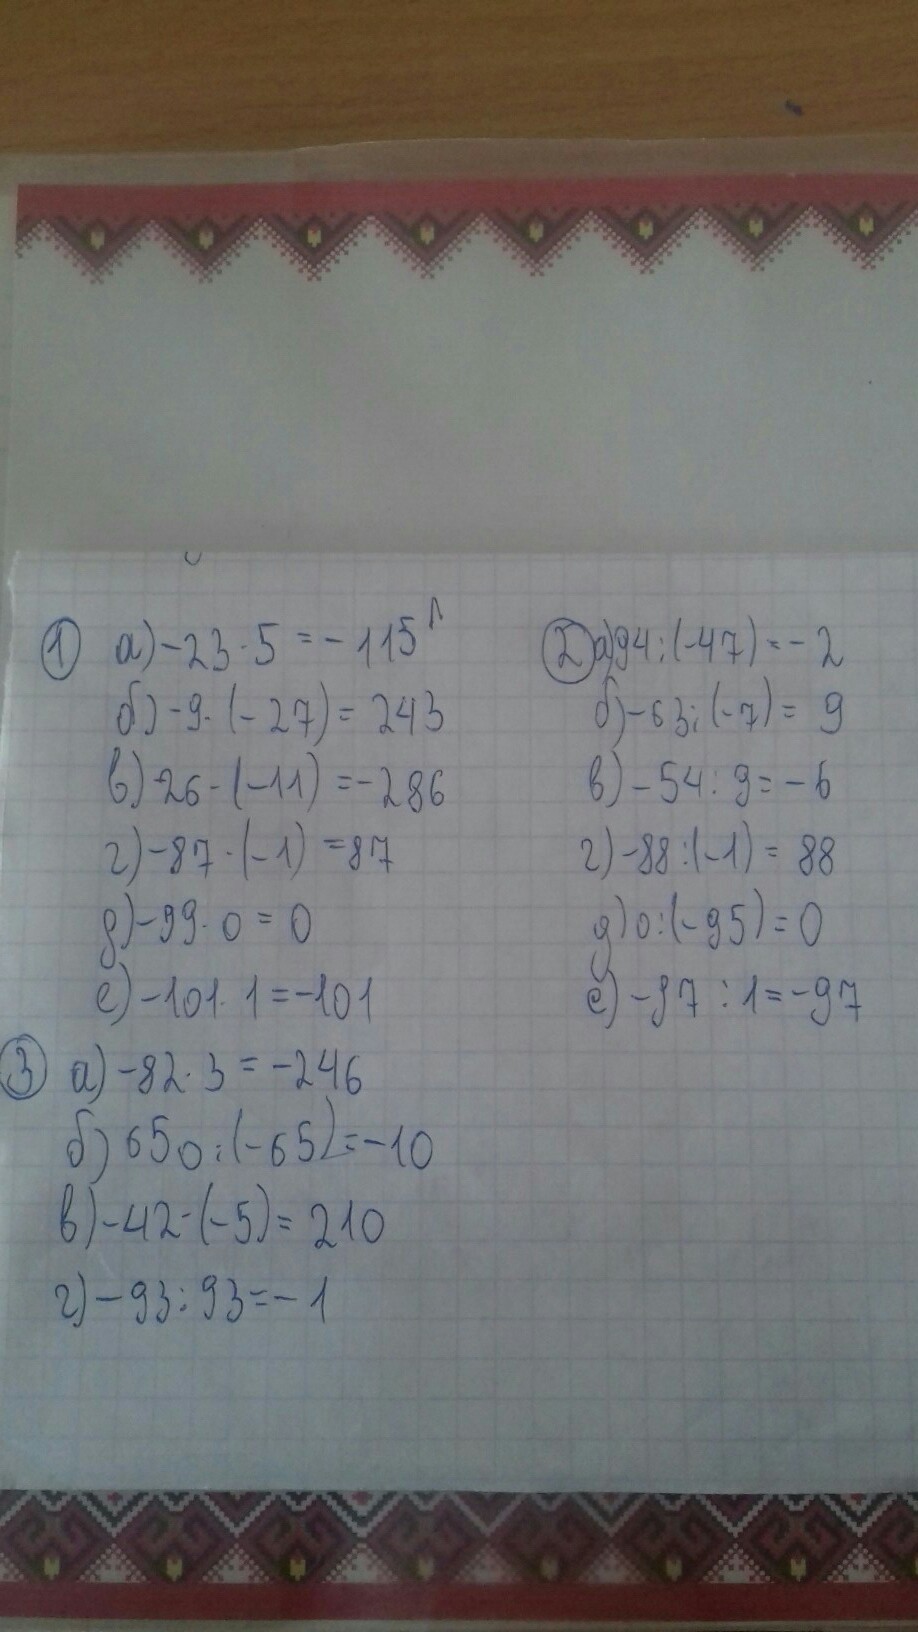 1 а) -23 · 5 = -115
б) -9 · (-27) = 243
в) 26 · (-11) = -286
г) -87 · (-1) = 87
д) -99 · 0 = 0
е) -101 · 1 = -101
2 а) 94 : (-47) = -2
б) -63 : (-7) = 9
в) -54 : 9 = -6
г) -88 : (-1) = 88
д) 0 : (-95) = 0
е) -97 : 1 = -97
3 а) -82 · 3 = -246
б) 650 : (-65) = -10
в) -42 · (-5) = 210
г) -93 : 93 = -1